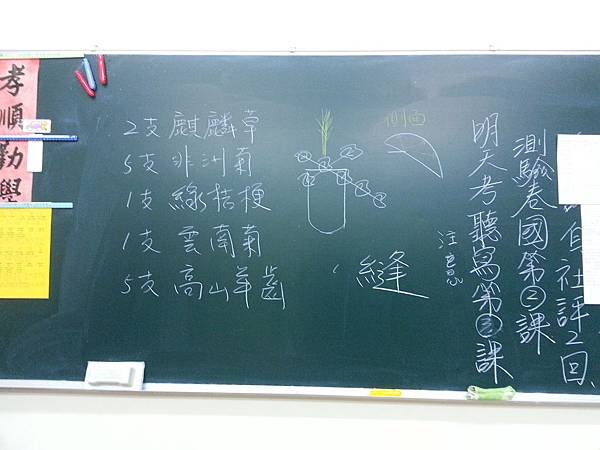 孝順
勤學
2支 麒麟草
5支 非洲菊
1支 綠桔梗
1支 雲南菊
5支 高山羊齒
側面
縫
注意
明天考聽寫第③課
測驗卷國第②課
自社評2回